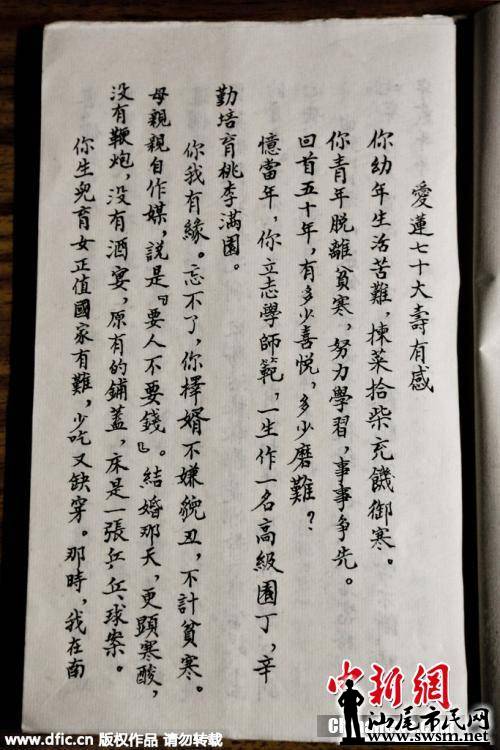 愛蓮七十大壽有感
你幼年生活苦難，揀菜拾柴充饑御寒。
你青年脱離貧寒，努力學習，事事争先。
回首五十年，有多少喜悦，多少磨難？
憶當年，你立志學師範，一生作一名高級園丁，辛
勤培育桃李滿園。
你我有緣。忘不了，你擇婿不嫌貌丑，不計貧寒。
母親親自作媒，説是『要人不要錢』。結婚那天，更顕寒酸，
没有鞭炮，没有酒宴，原有的鋪蓋，床是一張乒乓球案。
你生兒育女正值國家有難，少吃又缺穿。那時，我在南
中新網
汕尾市民网
www.swsm.net
www.dfic.cn 版权作品 请勿转载